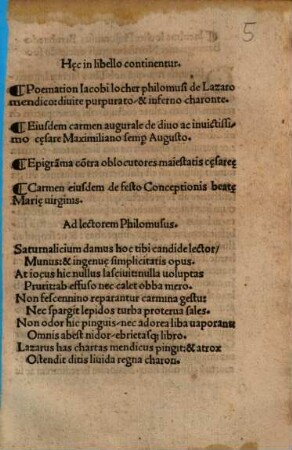 5
Hęc in libello continentur.
¶ Poemation Iacobi locher philomusi de Lazaro
mendico: diuite purpurato: & inferno charonte.
¶ Eiusdem carmen augurale de diuo ac inuictissi⸗
mo cęsare Maximiliano semꝑ Augusto.
¶ Epigrāma cōtra oblocutores maiestatis cęsareę
¶ Carmen eiusdem de festo Conceptionis beatę
Marię virginis.
Ad lectorem Philomusus.
Saturnalicium damus hoc tibi candide lector/
Munus: & ingenuę simplicitatis opus.
At iocus hic nullus lasciuit: nulla voluptas
Prurit: ab effuso nec calet obba mero.
Non fescennino reparantur carmina gestu:
Nec spargit lepidos turba proterua sales.
Non odor hic pinguis: nec adorea liba uaporant
Omnis abest nidor: ebrietasqꝫ libro.
Lazarus has chartas mendicus pingit: & atrox
Ostendit ditis liuida regna charon.